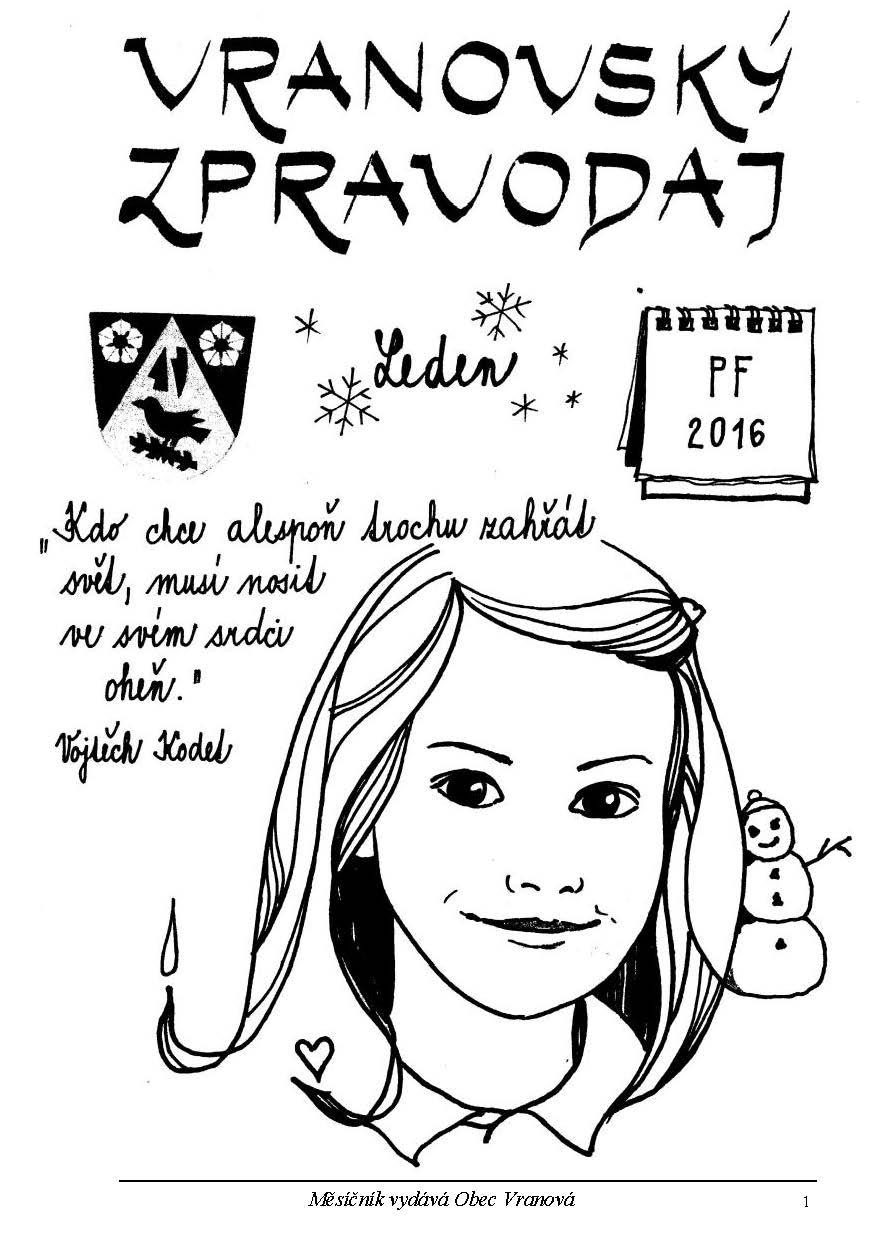 VRANOVSKÝ
ZPRAVODAJ
Leden
PF
2016
„Kdo chce alespoň trochu zahřát
svět, musí nosit
ve svém srdci
oheň."
Vojtěch Kodet
Měsíčník vydává Obec Vranová
1